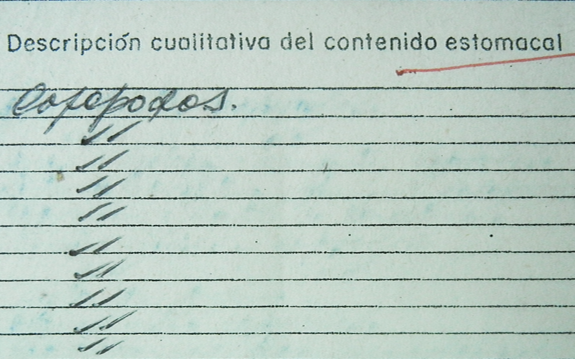 Descripción cualitativa del contenido estomacal
Copépodos.
"
"
"
"
"
"
"
"
"